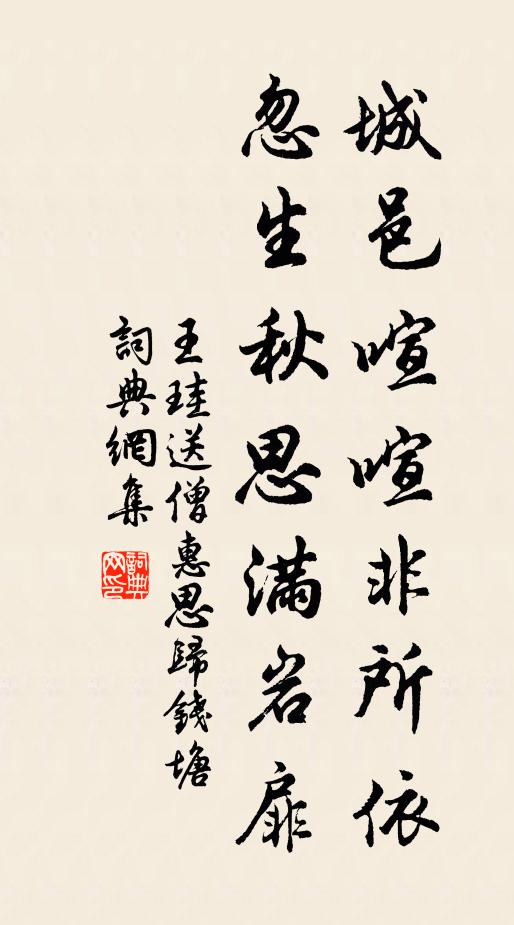 城邑喧喧非所依
忽生秋思滿岩扉
王珪送僧惠思歸錢塘
詞典網集
詞典
网印